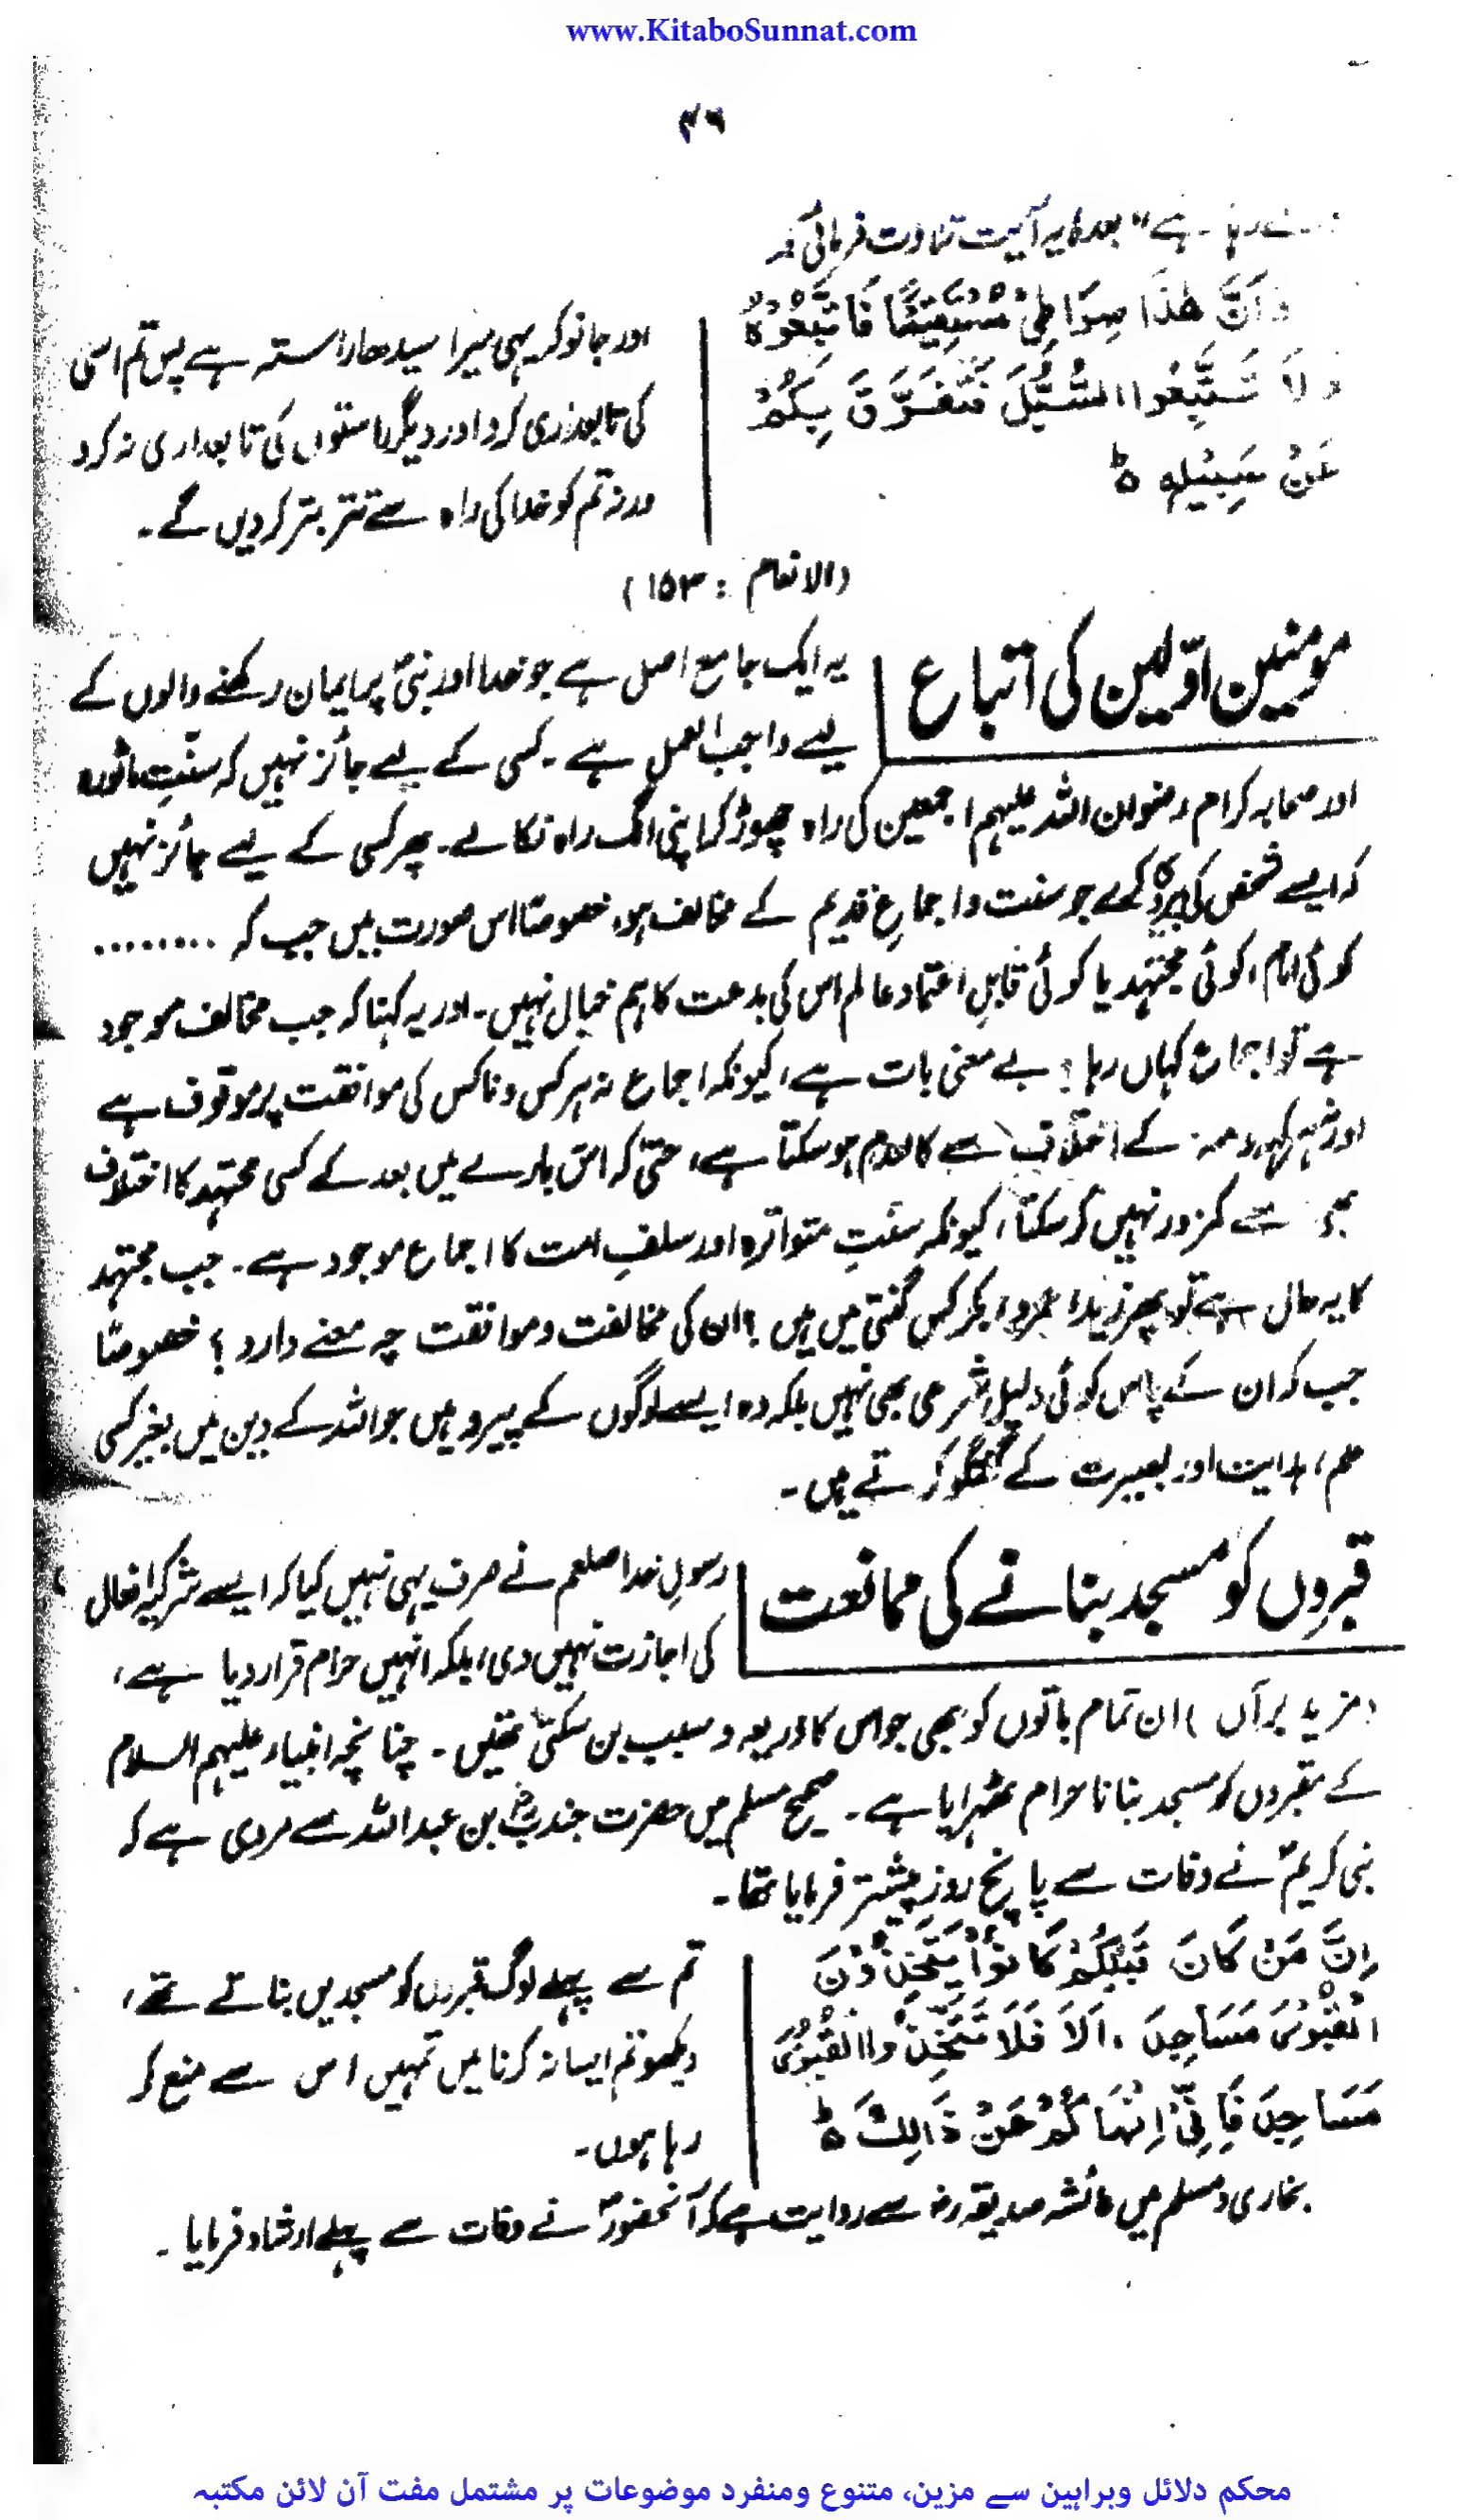 www.KitaboSunnat.com
۴۶
رہا ہے" بعدہٗ یہ آیت تلاوت فرمائی کہ
وَاَنَّ هٰذَا صِرَاطِیْ مُسْتَقِیْمًا فَاتَّبِعُوْهُ
وَلَا تَتَّبِعُوا السُّبُلَ فَتَفَرَّقَ بِکُمْ
عَنْ سَبِیْلِهٖ ط
اور جانو کہ یہی میرا سیدھا راستہ ہے پس تم اسی
کی تابعداری کرو اور دیگر راستوں کی تابعداری نہ کرو
ورنہ تم کو خدا کی راہ سے تتر بتر کر دیں گے۔
(الانعام : ۱۵۳)
مومنین اوّلین کی اتباع
یہ ایک جامع اصل ہے جو خدا اور نبیؐ پر ایمان رکھنے والوں کے
لیے واجب العمل ہے۔ کسی کے لیے جائز نہیں کہ سنّتِ ماثورہ
اور صحابہ کرام رضوان اللہ علیہم اجمعین کی راہ چھوڑ کر اپنی الگ راہ نکالے۔ پھر کسی کے لیے جائز نہیں
کہ ایسے شخص کی پیروی کرے جو سنت و اجماعِ قدیم کے مخالف ہو، خصوصًا اس صورت میں جب کہ ........
کوئی امام، کوئی مجتہد یا کوئی قابلِ اعتماد عالم اس کی بدعت کا ہم خیال نہیں۔ اور یہ کہنا کہ جب مخالف موجود
ہے تو اجماع کہاں رہا؟ بے معنی بات ہے، کیونکہ اجماع نہ ہر کس و ناکس کی موافقت پر موقوف ہے
اور نہ کہ و مہ کے اختلاف سے کالعدم ہو سکتا ہے، حتیٰ کہ اس بارے میں بعد کے کسی مجتہد کا اختلاف
بھی اسے کمزور نہیں کر سکتا، کیونکہ سنتِ متواترہ اور سلفِ امت کا اجماع موجود ہے۔ جب مجتہد
کا یہ حال ہے تو پھر زید، عمرو، بکر کس گنتی میں ہیں؟ ان کی مخالفت و موافقت چہ معنے دارد؟ خصوصًا
جب کہ ان کے پاس کوئی دلیل شرعی بھی نہیں بلکہ وہ ایسے لوگوں کے پیرو ہیں جو اللہ کے دین میں بغیر کسی
علم، ہدایت اور بصیرت کے گفتگو کرتے ہیں۔
قبروں کو مسجد بنانے کی ممانعت
رسولِ خدا صلعم نے صرف یہی نہیں کیا کہ ایسے شرکیہ افعال
کی اجازت نہیں دی، بلکہ انہیں حرام قرار دیا ہے،
(مزید برآں) ان تمام باتوں کو بھی جو اس کا ذریعہ و سبب بن سکتی تھیں۔ چنانچہ انبیاء علیہم السلام
کے مقبروں کو مسجد بنانا حرام ٹھہرایا ہے۔ صحیح مسلم میں حضرت جندبؓ بن عبداللہ سے مروی ہے کہ
نبی کریمؐ نے وفات سے پانچ روز پیشتر فرمایا تھا۔
اِنَّ مَنْ کَانَ قَبْلَکُمْ کَانُوْا یَتَّخِذُوْنَ
الْقُبُوْرَ مَسَاجِدَ، اَلَا فَلَا تَتَّخِذُوا الْقُبُوْرَ
مَسَاجِدَ فَاِنِّیْ اَنْهَاکُمْ عَنْ ذَالِکَ ط
تم سے پہلے لوگ قبروں کو مسجدیں بناتے تھے،
دیکھو تم ایسا نہ کرنا میں تمہیں اس سے منع کر
رہا ہوں۔
بخاری و مسلم میں عائشہ صدیقہ رضؓ سے روایت ہے کہ آنحضورؐ نے وفات سے پہلے ارشاد فرمایا۔
محکم دلائل وبراہین سے مزین، متنوع ومنفرد موضوعات پر مشتمل مفت آن لائن مکتبہ